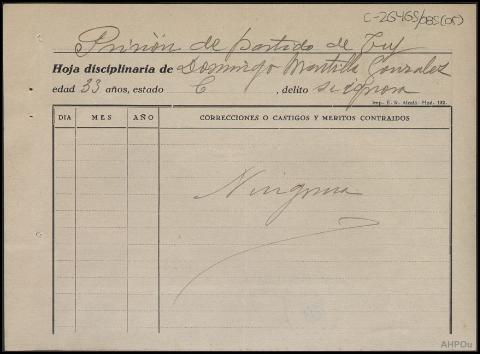 C-26465/085(05)
Prisión de partido de Tuy
Hoja disciplinaria de Domingo Mantilla Gonzalez
edad 33 años, estado C, delito se ignora
Imp. E. N. Alcalá Mod. 183.
DIA MES AÑO CORRECCIONES O CASTIGOS Y MERITOS CONTRAIDOS
Ninguna
AHPOu